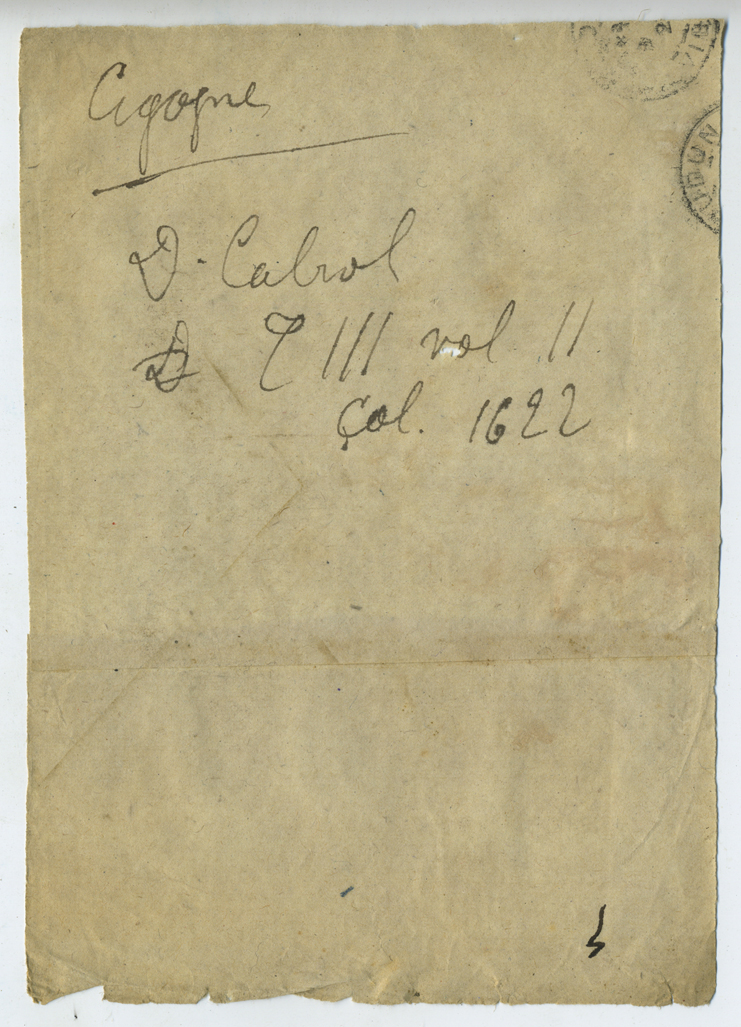 Cigogne
D. Cabrol
D T III vol II
Col. 1622